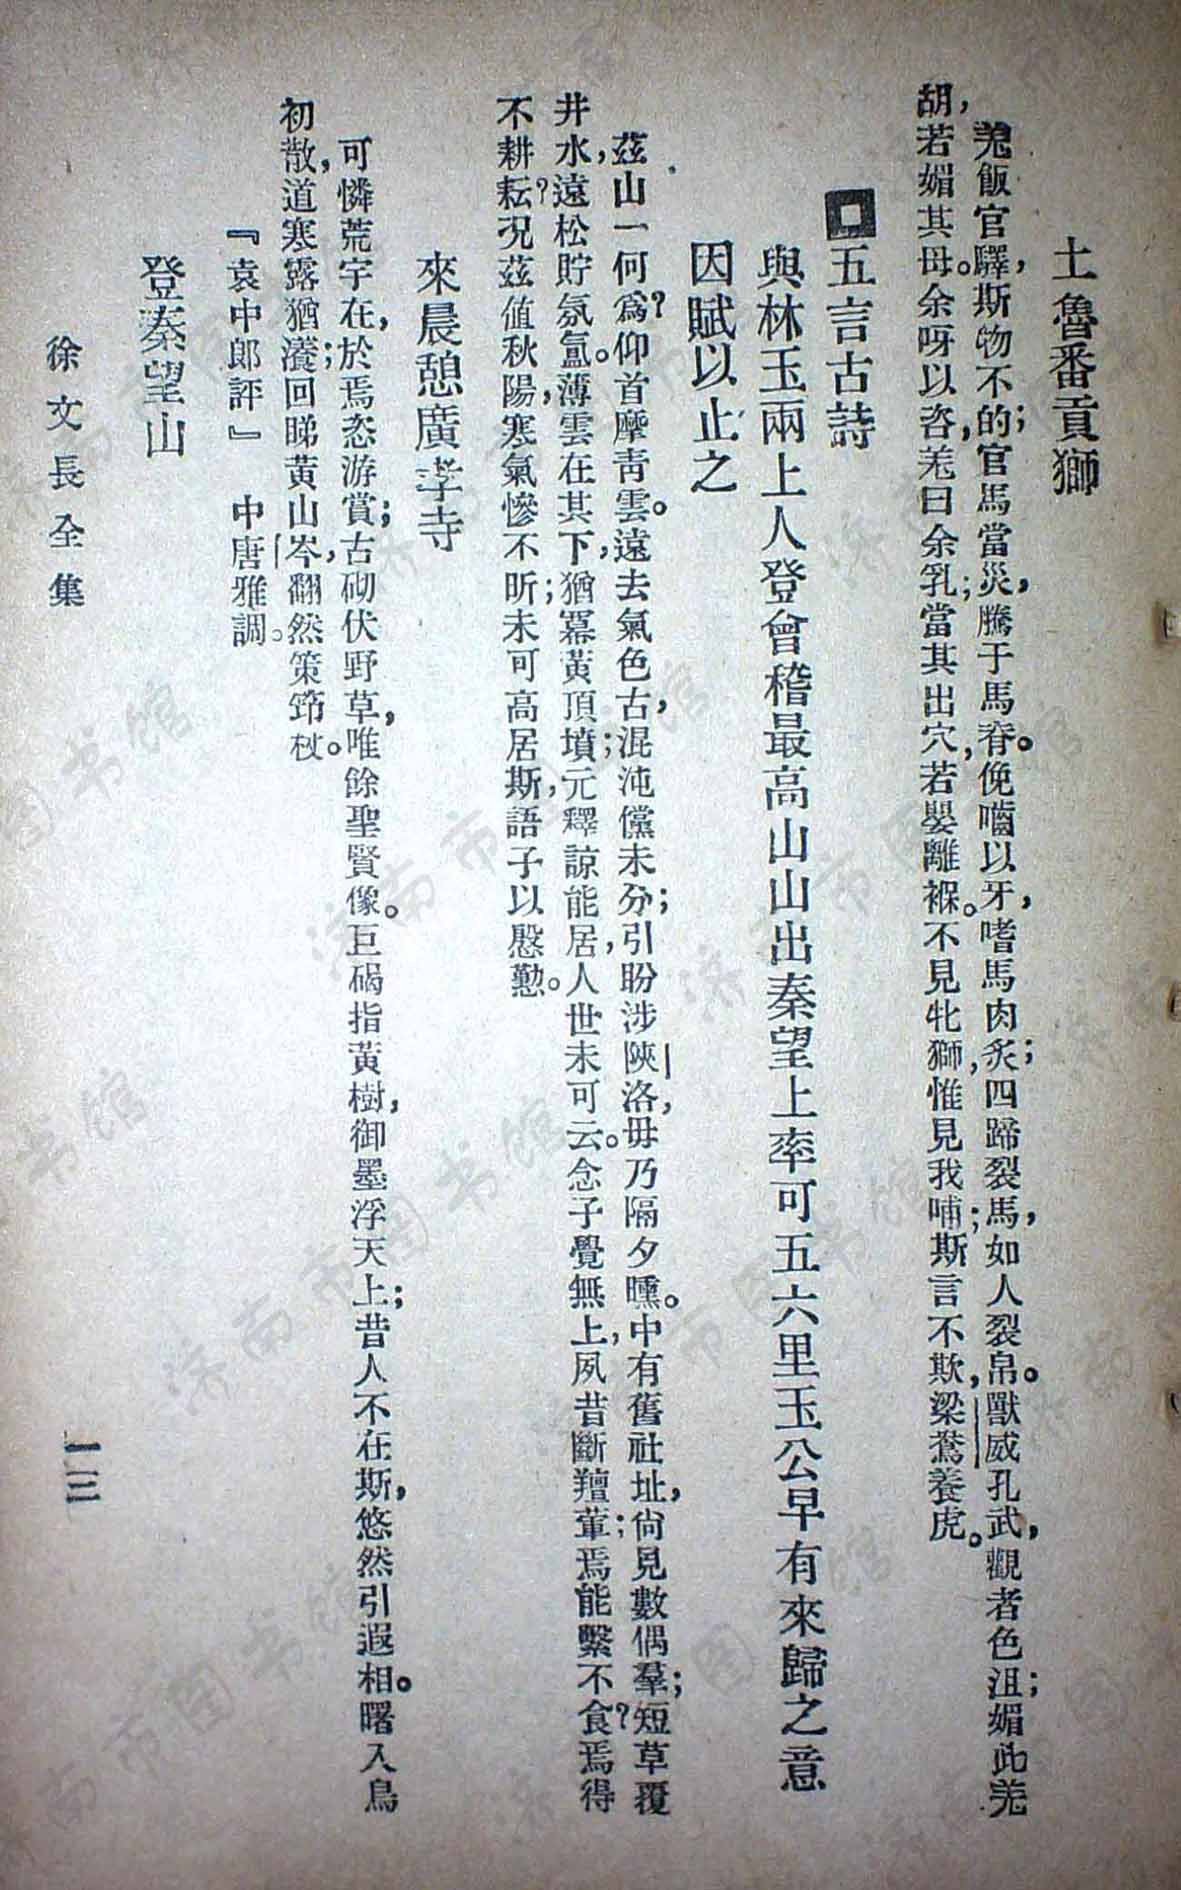 土魯番貢獅
羌飯官驛，斯物不的；官馬當災，騰于馬脊。俛嚙以牙，嗜馬肉炙；四蹄裂馬，如人裂帛。獸威孔武，觀者色沮；媚此羌
胡，若媚其母。余呀以咨，羌曰余乳；當其出穴，若嬰離褓。不見牝獅，惟見我哺；斯言不欺，梁鴦養虎。
五言古詩
與林玉兩上人登會稽最高山山出秦望上率可五六里玉公早有來歸之意
因賦以止之
茲山一何爲？仰首摩靑雲。遠去氣色古，混沌儻未分；引盼涉陝洛，毋乃隔夕曛。中有舊社址，尙見數偶羣；短草覆
井水，遠松貯氛氳。薄雲在其下，猶冪黃頂墳；元釋諒能居，人世未可云。念子覺無上，夙昔斷羶葷；焉能繫不食？焉得
不耕耘？況茲值秋陽，寒氣慘不昕；未可高居斯，語子以慇懃。
來晨憩廣孝寺
可憐荒宇在，於焉恣游賞；古砌伏野草，唯餘聖賢像。巨碣指黃樹，御墨浮天上；昔人不在斯，悠然引遐相。曙入鳥
初散，道寒露猶瀼；回睇黃山岑，翻然策筇杖。
『袁中郎評』　中唐雅調。
登秦望山
徐文長全集
一三
济南市图书馆